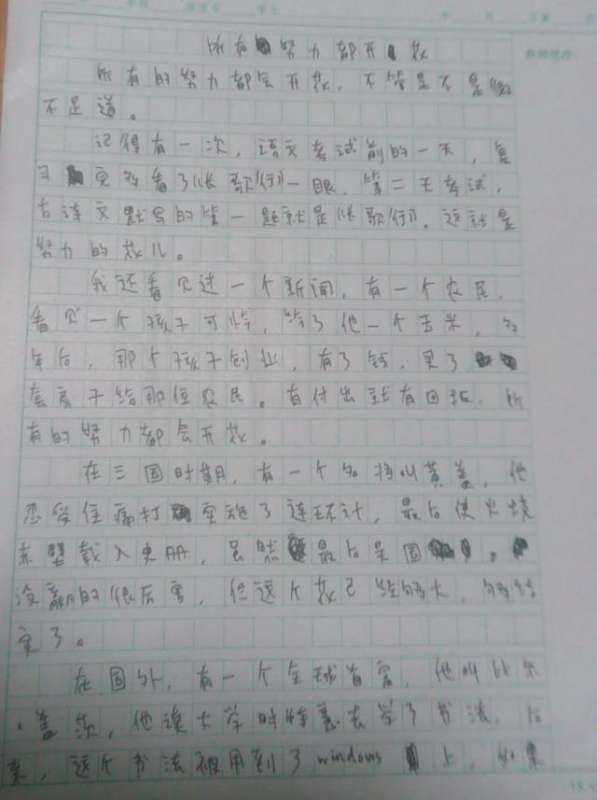 所有努力都开花
所有的努力都会开花，不管是不是微
不足道。
记得有一次，语文考试前的一天，复
习我看了《长歌行》一眼，第二天考试，
古诗文默写的第一题就是《长歌行》。这就是
努力的花儿。
我还看见过一个新闻，有一个农民，
看见一个孩子可怜，给了他一个玉米，多
年后，那个孩子创业，有了钱，买了
套房子给那位农民。有付出就有回报，所
有的努力都会开花。
在三国时期，有一个名将叫黄盖，他
忍受住痛打实施了连环计，最后使火烧
赤壁载入史册，虽然最后吴国
没赢的很厉害，但这个花已经够大，够结
实了。
在国外，有一个全球首富，他叫比尔
·盖茨，他读大学时特意去学了书法，后
来，这个书法被用到了windows上，如果